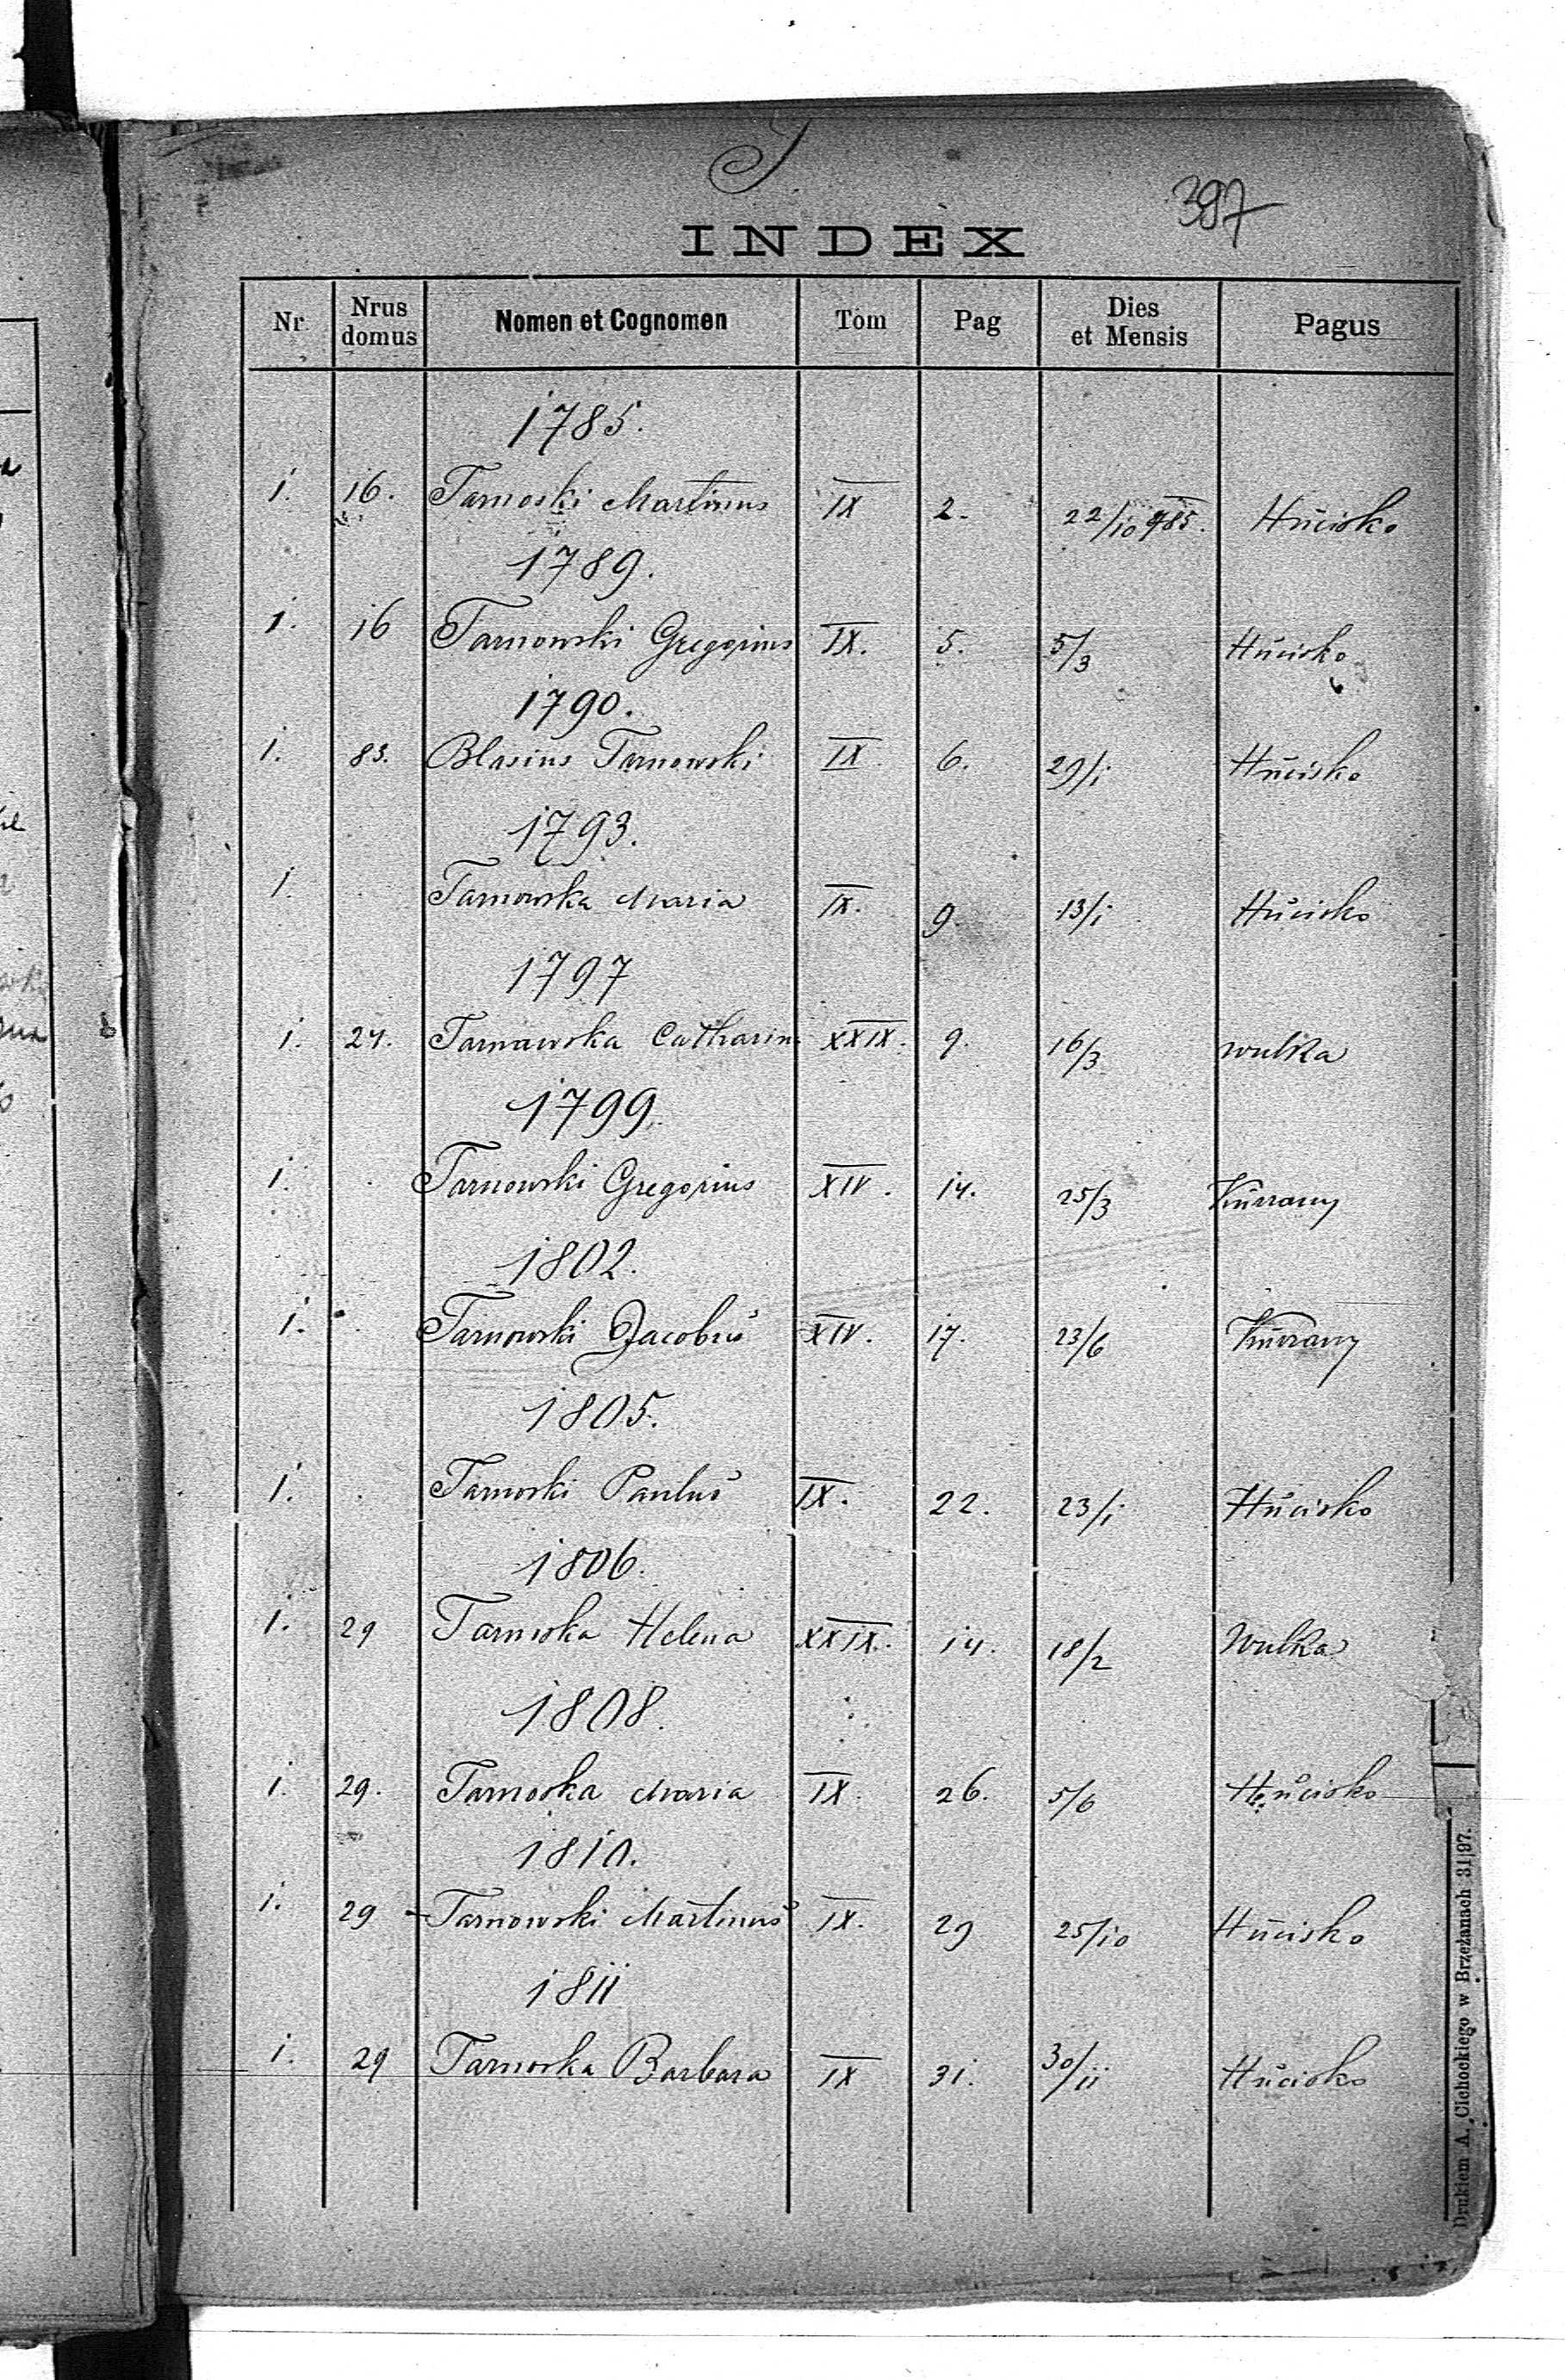 T
397
INDEX
Nr Nrus domus Nomen et Cognomen Tom Pag Dies et Mensis Pagus
1785.
1. 16. Tarnoski Martinus IX 2. 22/10 785. Hücisko
1789.
1. 16 Tarnowski Gregorius IX. 5. 5/3 Hücisko
1790.
1. 83. Blasius Tarnowski IX. 6. 29/1 Hücisko
1793.
1. Tarnowska Maria IX. 9. 13/1 Hücisko
1797
1. 24. Tarnawska Catharin XXIX. 9. 16/3 Wulka
1799.
1. Tarnowski Gregorius XIV. 14. 25/3
1802.
1. Tarnowski Jacobus XIV. 17. 23/6
1805.
1. Tarnoski Paulus IX. 22. 23/1 Hücisko
1806.
1. 29 Tarnoska Helena XXIX. 14. 18/2 Wulka
1808.
1. 29. Tarnoska Maria IX. 26. 5/6 Hücisko
1810.
1. 29 Tarnowski Martinus IX. 29 25/10 Hücisko
1811
1. 29 Tarnoska Barbara IX 31. 30/11 Hücisko
Drukiem A. Cichockiego w Brzeżanach 31|97.